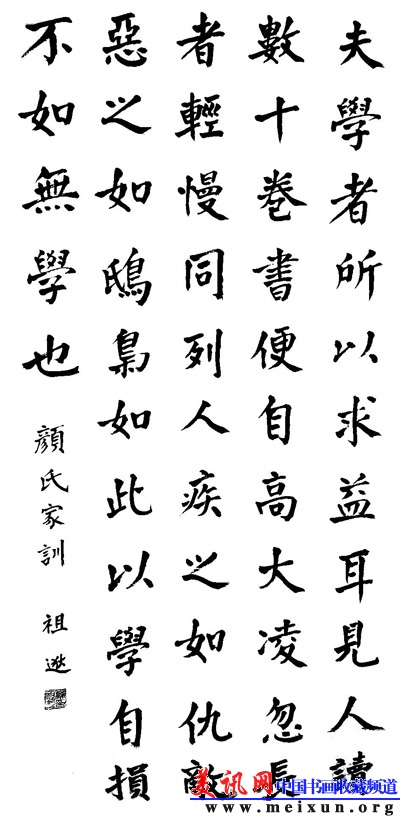 夫學者所以求益耳見人讀
數十卷書便自高大凌忽長
者輕慢同列人疾之如仇敵
惡之如鴟梟如此以學自損
不如無學也
顏氏家訓 祖
美讯网 中国书画收藏频道
www.meixun.org